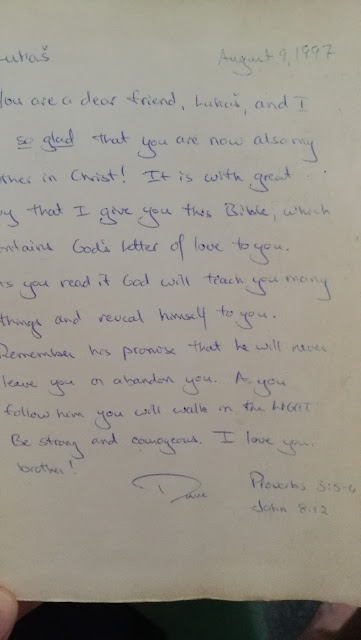 Lukaš August 9, 1997
You are a dear friend, Lukaš, and I
so glad that you are now also my
other in Christ! It is with great
oy that I give you this Bible, which
ontains God's letter of love to you.
As you read it God will teach you many
things and reveal himself to you.
Remember his promise that he will never
leave you or abandon you. As you
follow him you will walk in the LIGHT
Be strong and courageous. I love you,
brother!
Dave Proverbs 3:5-6
John 8:12